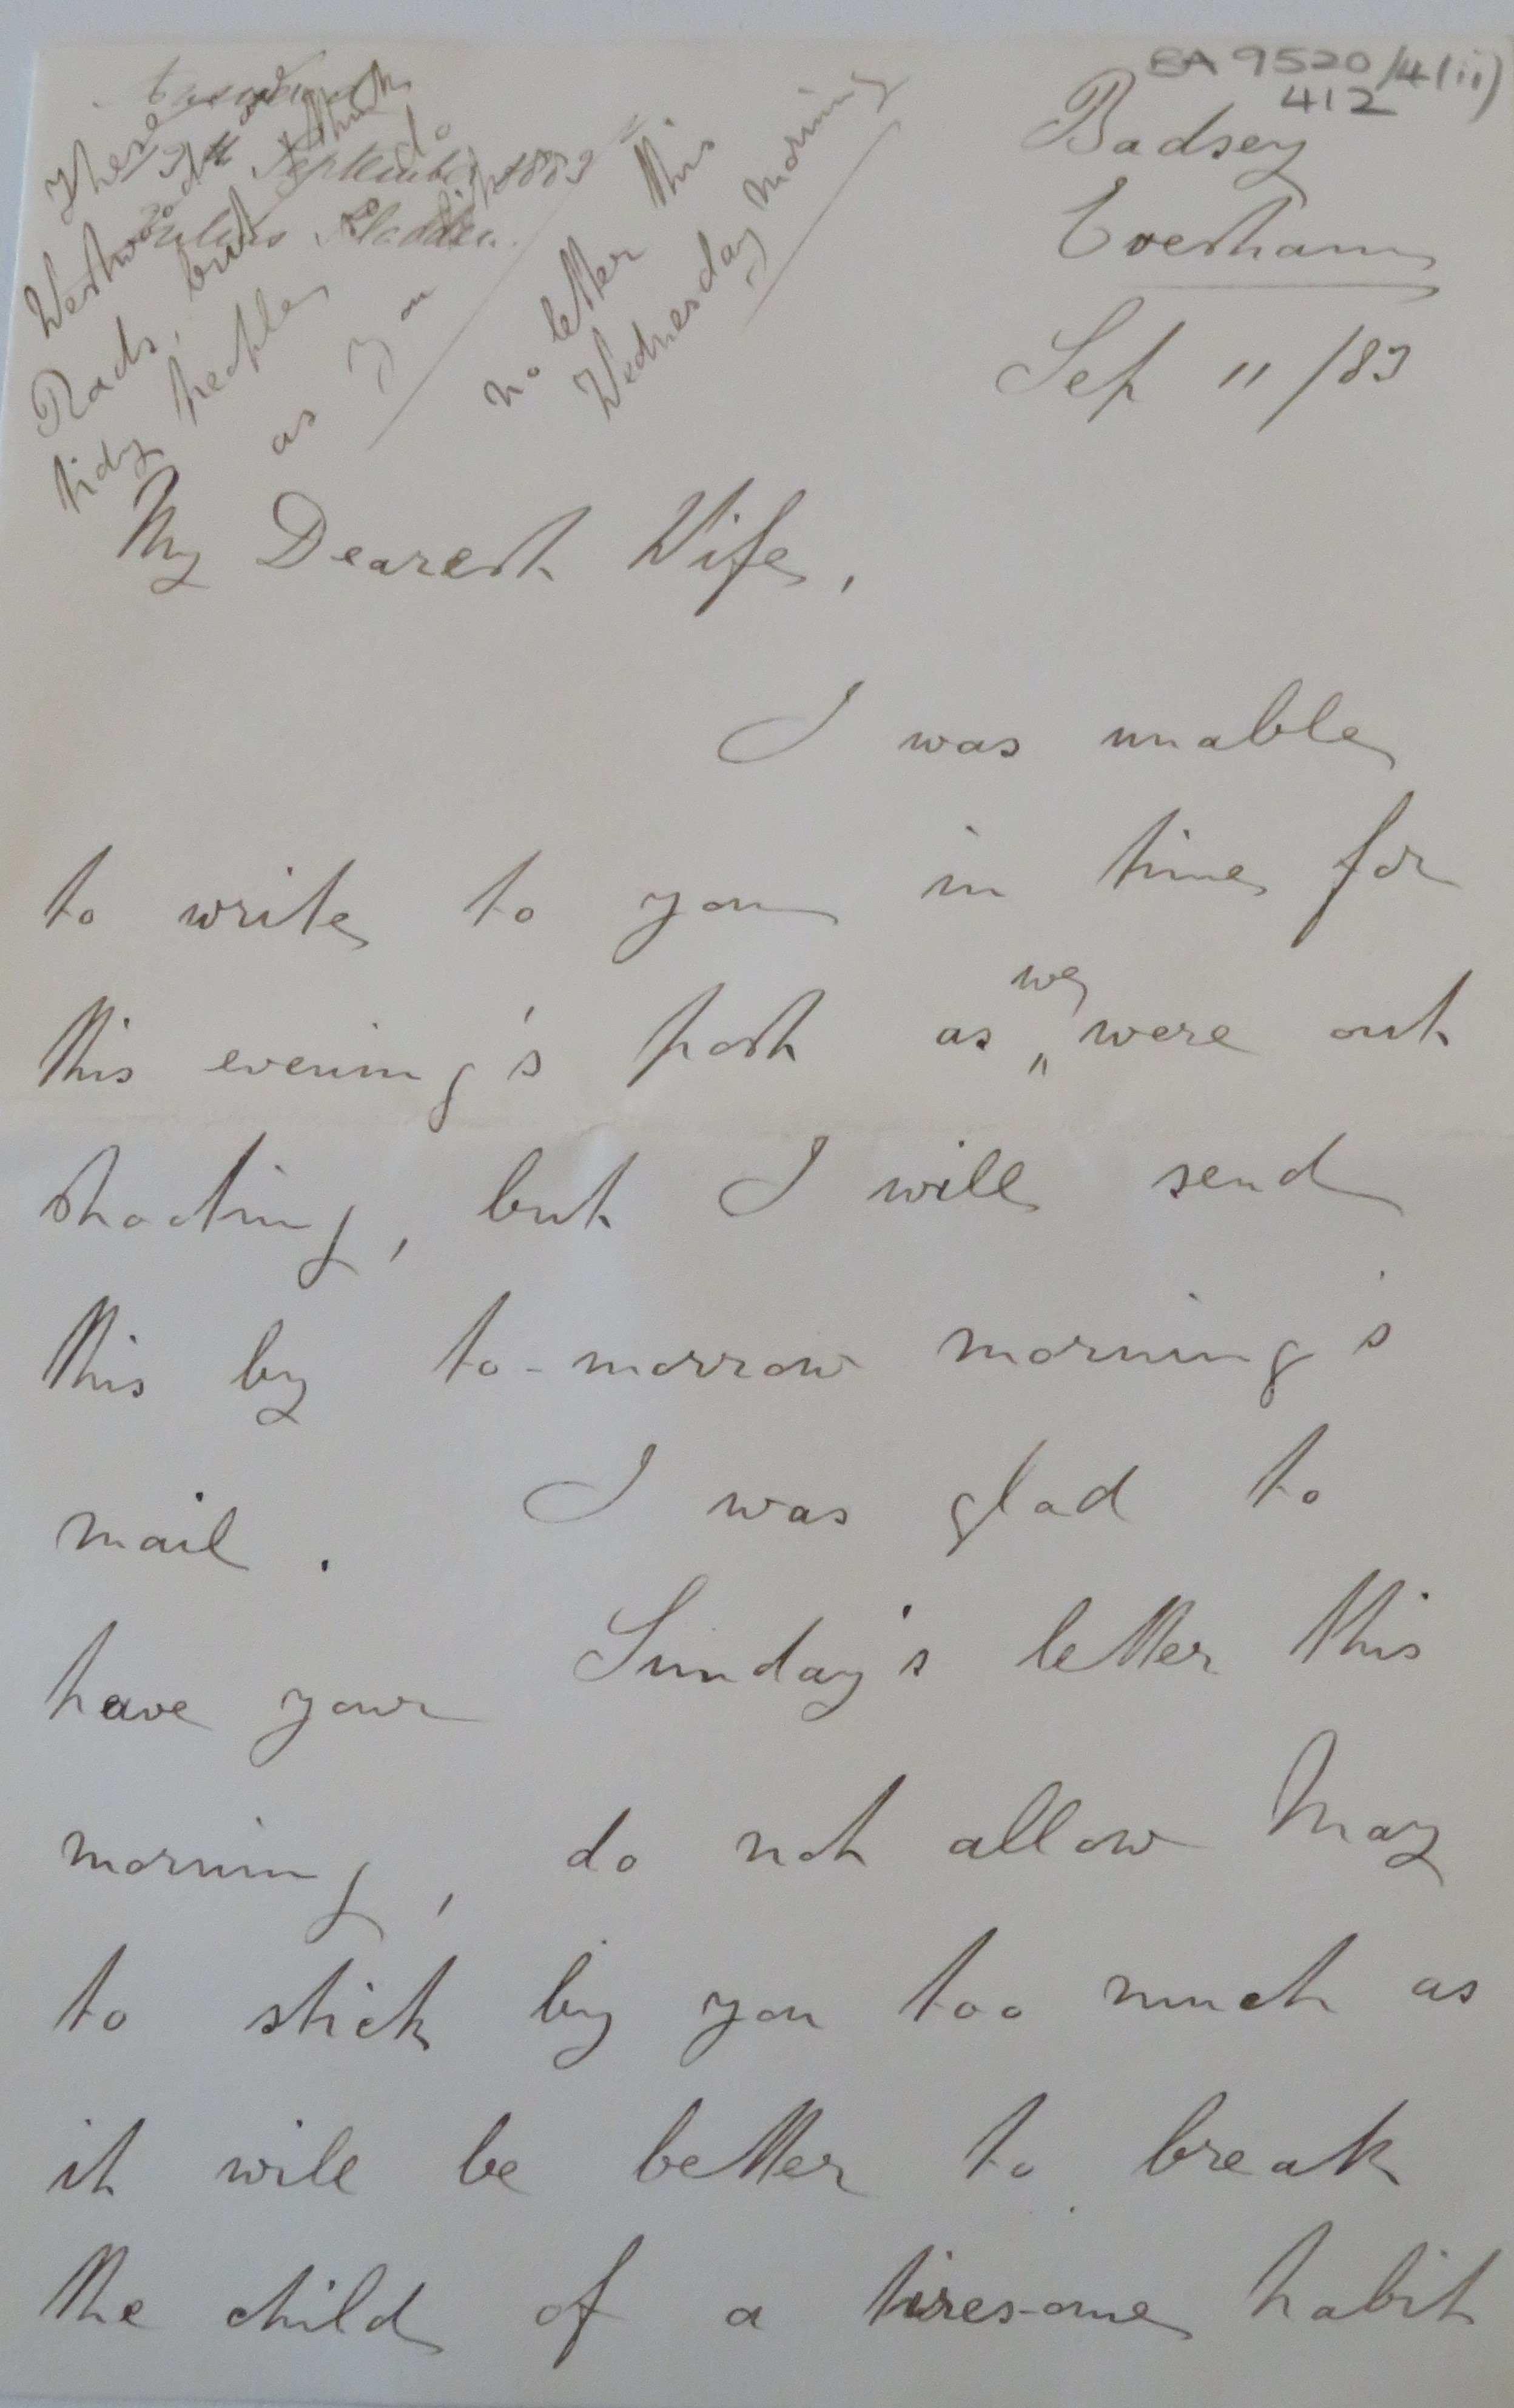 BA 9520/4(ii)
412
Badsey
Evesham
Sep 11/83
September 1883
Julius Sladden
There are
Westwood
Rads, but I think
tidy people do
as you
no letter this
Wednesday morning
My Dearest Wife,
I was unable
to write to you in time for
this evening's post as we were out
shooting, but I will send
this by to-morrow morning's
mail. I was glad to
have your Sunday's letter this
morning, do not allow May
to stick by you too much as
it will be better to break
the child of a tiresome habit